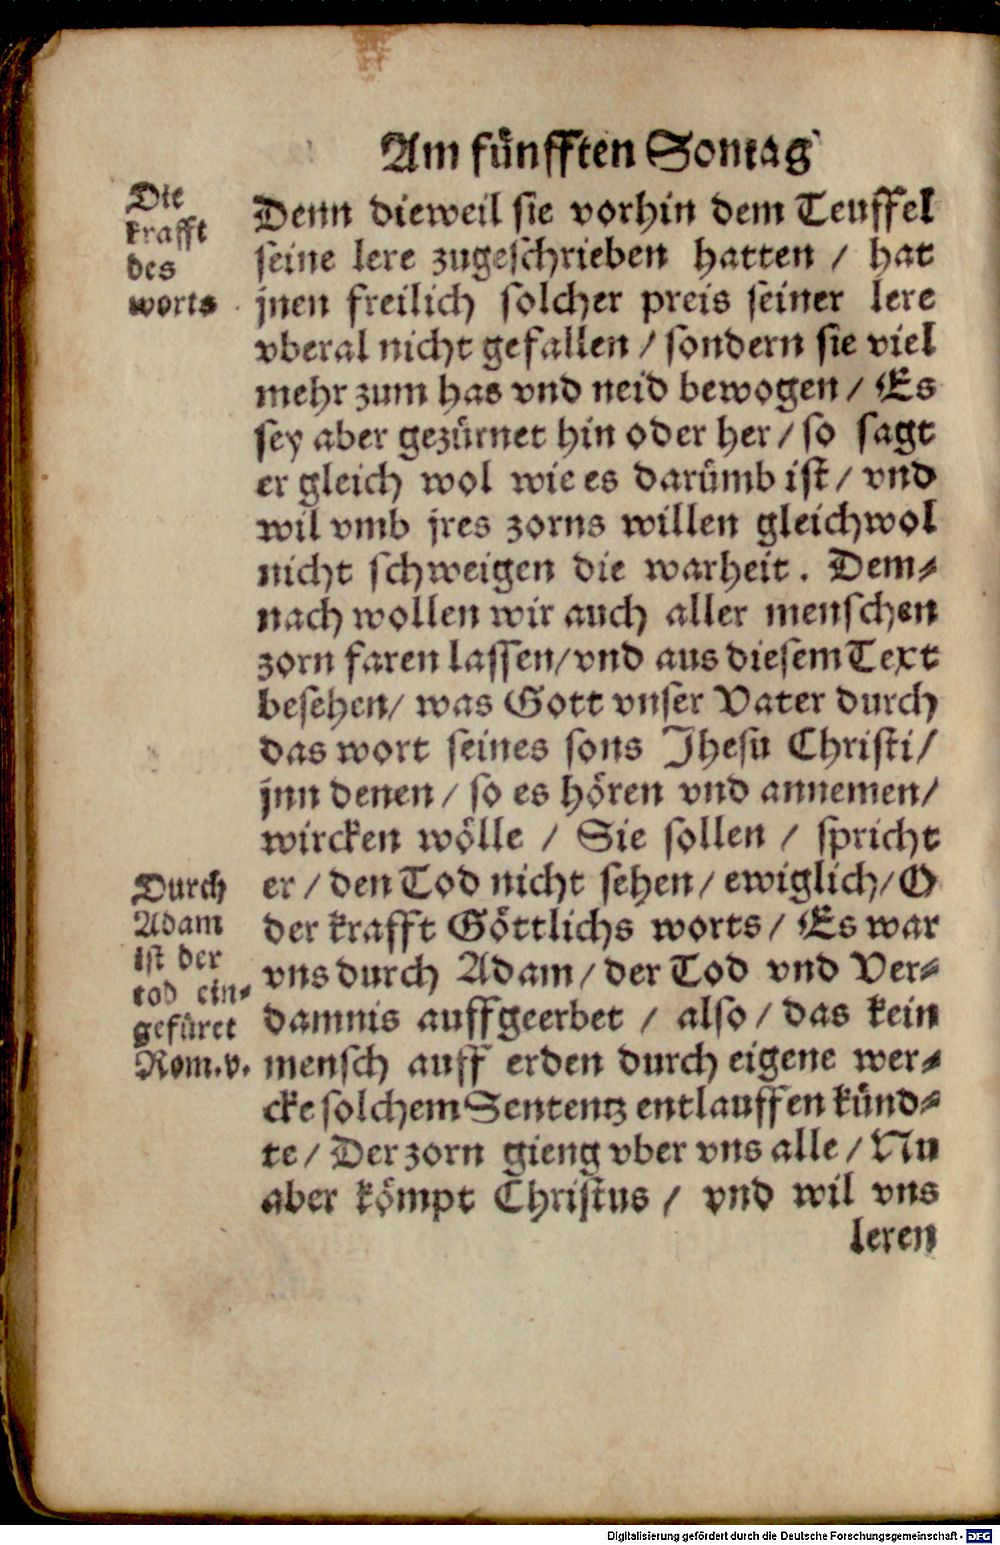 Am fünfften Sontag
Die
krafft
des
worts
Denn dieweil sie vorhin dem Teuffel
seine lere zugeschrieben hatten / hat
jnen freilich solcher preis seiner lere
vberal nicht gefallen / sondern sie viel
mehr zum has vnd neid bewogen / Es
sey aber gezürnet hin oder her / so sagt
er gleich wol wie es darümb ist / vnd
wil vmb jres zorns willen gleichwol
nicht schweigen die warheit. Dem⸗
nach wollen wir auch aller menschen
zorn faren lassen/vnd aus diesem Text
besehen/ was Gott vnser Vater durch
das wort seines sons Jhesu Christi/
jnn denen / so es hören vnd annemen/
wircken wölle / Sie sollen / spricht
er / den Tod nicht sehen / ewiglich/ O
der krafft Göttlichs worts / Es war
vns durch Adam / der Tod vnd Ver⸗
damnis auffgeerbet / also / das kein
mensch auff erden durch eigene wer⸗
cke solchem Sententz entlauffen künd⸗
te / Der zorn gieng vber vns alle / Nu
aber kömpt Christus / vnd wil vns
leren
Durch
Adam
ist der
tod ein⸗
gefüret
Rom.v.
Digitalisierung gefördert durch die Deutsche Forschungsgemeinschaft - DFG